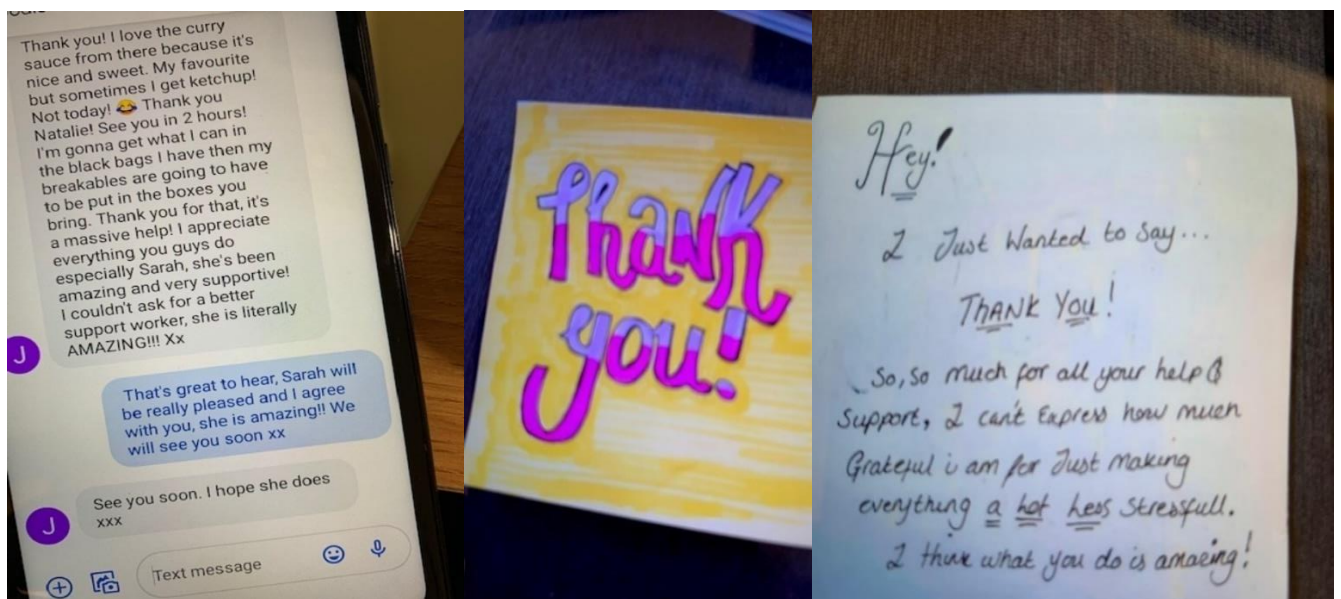 Thank you! I love the curry
sauce from there because it's
nice and sweet. My favourite
but sometimes I get ketchup!
Not today! 😂 Thank you
Natalie! See you in 2 hours!
I'm gonna get what I can in
the black bags I have then my
breakables are going to have
to be put in the boxes you
bring. Thank you for that, it's
a massive help! I appreciate
everything you guys do
especially Sarah, she's been
amazing and very supportive!
I couldn't ask for a better
support worker, she is literally
AMAZING!!! Xx
J
That's great to hear, Sarah will
be really pleased and I agree
with you, she is amazing!! We
will see you soon xx
See you soon. I hope she does
xxx
J
Text message
Thank
you!
Hey!
I Just Wanted to Say...
THANK YOU!
So, so much for all your help &
Support, I can't Express how much
Grateful i am for Just making
everything a hot less Stressfull.
I think what you do is amazing!